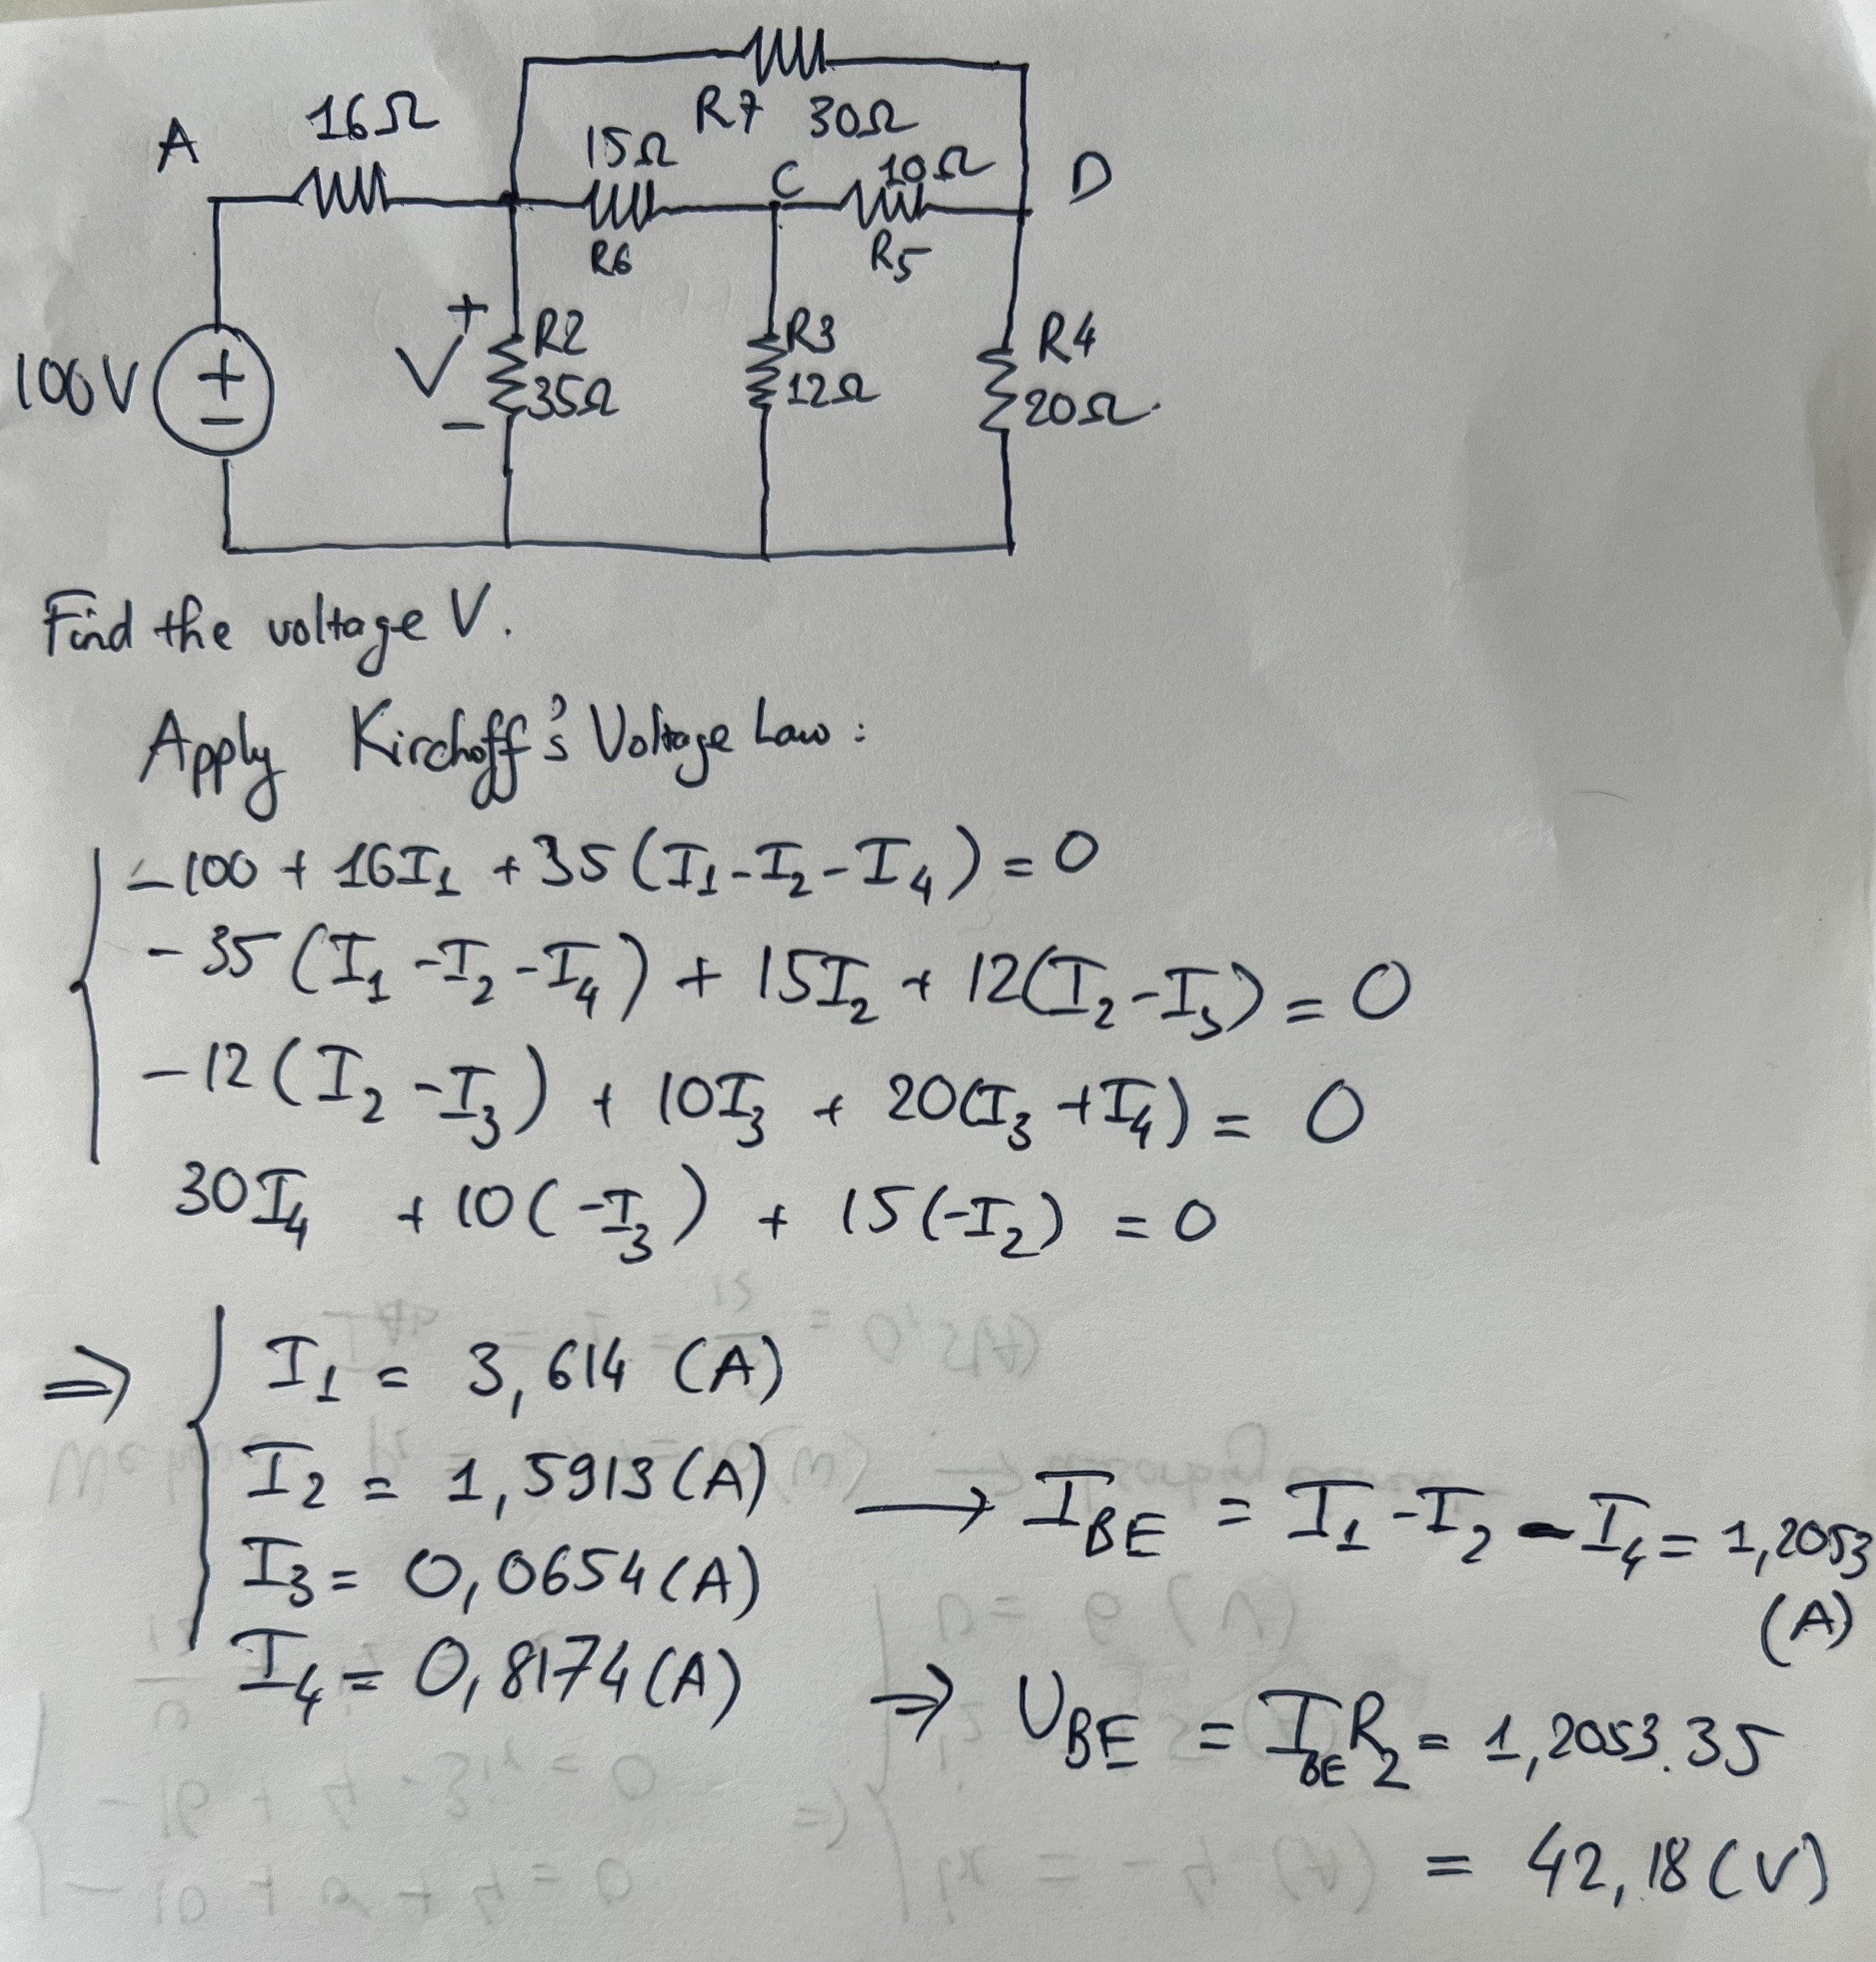 R7 30Ω
A 16Ω 15Ω C 10Ω D
R6 R5
100V + - + V - R2 35Ω R3 12Ω R4 20Ω
Find the voltage V.
Apply Kirchoff's Voltage Law:
-100 + 16I₁ + 35(I₁-I₂-I₄) = 0
-35(I₁-I₂-I₄) + 15I₂ + 12(I₂-I₃) = 0
-12(I₂-I₃) + 10I₃ + 20(I₃+I₄) = 0
30I₄ + 10(-I₃) + 15(-I₂) = 0
⇒ I₁ = 3,614 (A)
I₂ = 1,5913 (A) → I_BE = I₁-I₂-I₄ = 1,2053 (A)
I₃ = 0,0654 (A)
I₄ = 0,8174 (A) ⇒ U_BE = I_BE R₂ = 1,2053.35
= 42,18 (V)